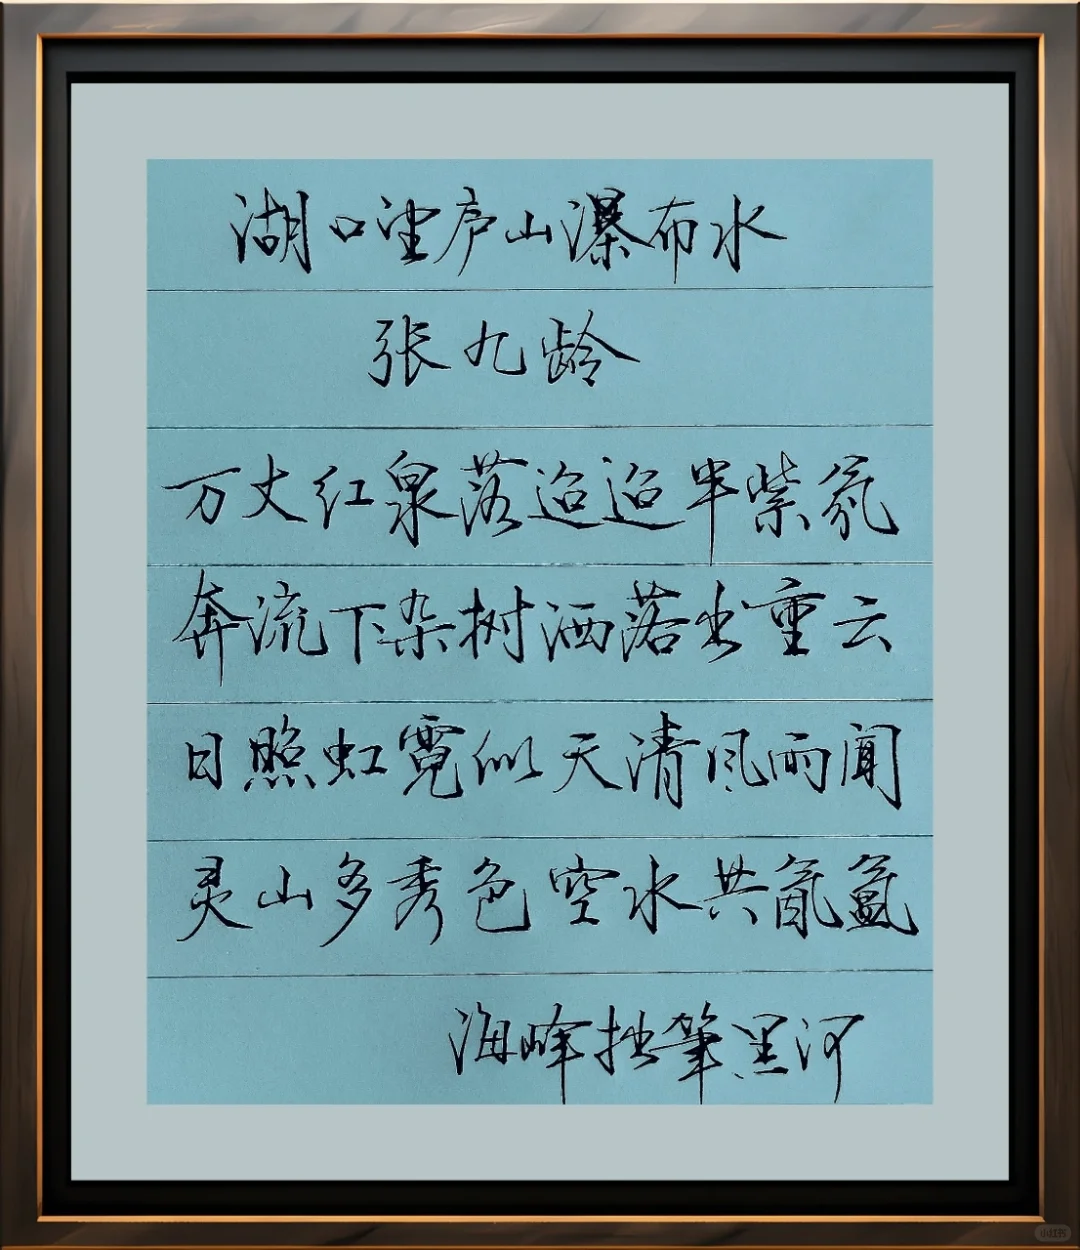 湖口望庐山瀑布水
张九龄
万丈红泉落迢迢半紫氛
奔流下杂树洒落出重云
日照虹霓似天清风雨闻
灵山多秀色空水共氤氲
海峰拙筆黑河
小红书